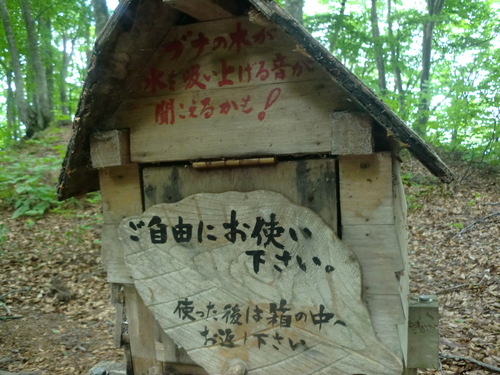 ブナの木が
水を吸い上げる音が
聞こえるかも!
ご自由にお使い
下さい。
使った後は箱の中へ
お返し下さい